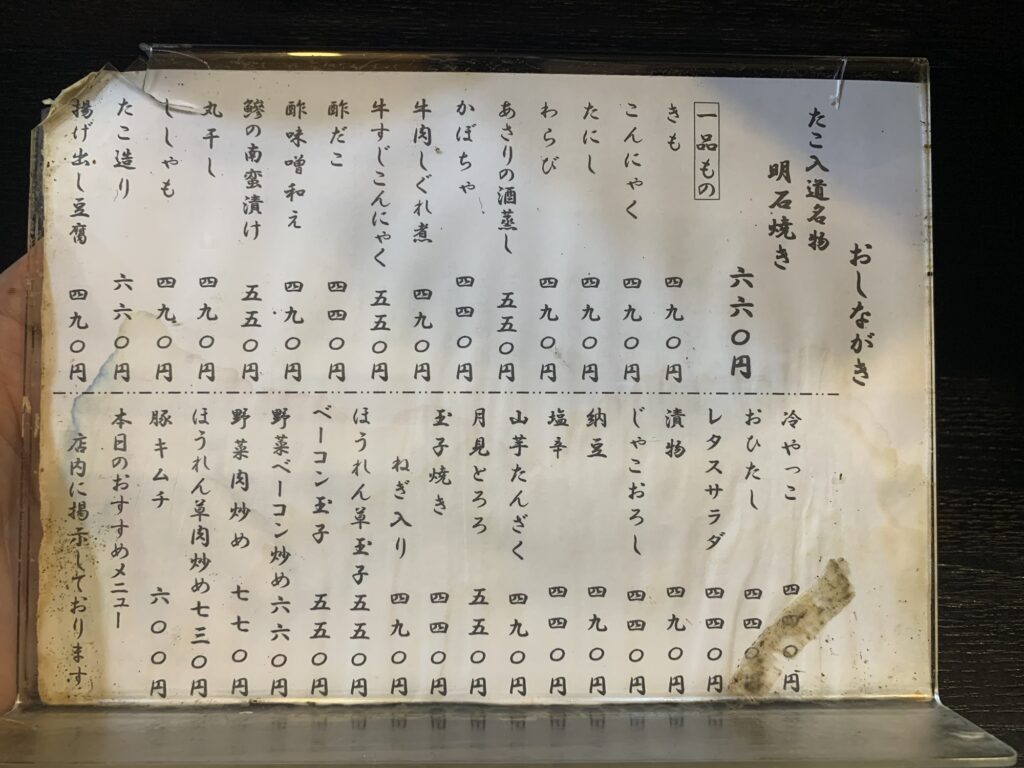 おしながき
たこ入道名物
明石焼き 六六〇円
一品もの
きも 四九〇円
こんにゃく 四九〇円
たにし 四九〇円
わらび 四九〇円
あさりの酒蒸し 五五〇円
かぼちゃ 四四〇円
牛肉しぐれ煮 四九〇円
牛すじこんにゃく 五五〇円
酢だこ 四四〇円
酢味噌和え 四九〇円
鯵の南蛮漬け 五五〇円
丸干し 四九〇円
ししゃも 四九〇円
たこ造り 六六〇円
揚げ出し豆腐 四九〇円
冷やっこ 四四〇円
おひたし 四四〇円
レタスサラダ 四四〇円
漬物 四九〇円
じゃこおろし 四四〇円
納豆 四九〇円
塩辛 四四〇円
山芋たんざく 四九〇円
月見とろろ 五五〇円
玉子焼き 四四〇円
ねぎ入り 四九〇円
ほうれん草玉子 五五〇円
ベーコン玉子 五五〇円
野菜ベーコン炒め 六六〇円
野菜肉炒め 七七〇円
ほうれん草肉炒め 七三〇円
豚キムチ 六〇〇円
本日のおすすめメニュー
店内に掲示しております